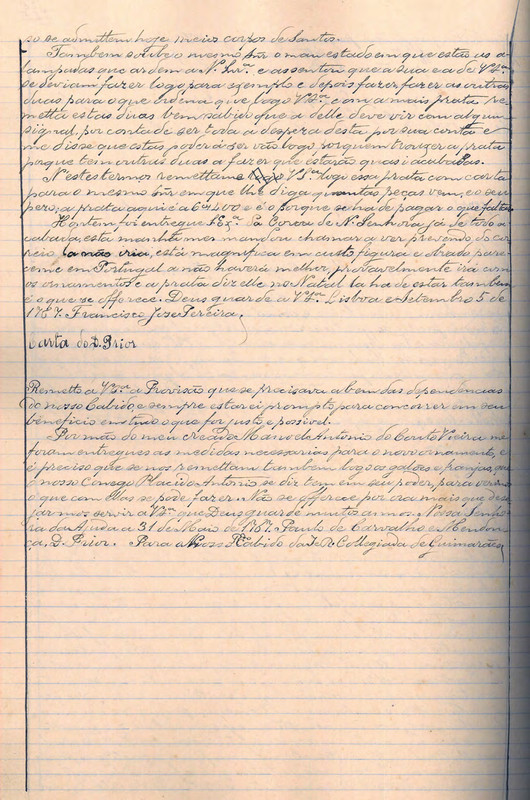 so se admittem hoje meios corpos de Santos.
Tambem soube o mesmo Snr o mau estado em que estão as
lampadas que ardem a N. Snr.ª e assentou que a sua e a de V. S.ª
se deviam fazer logo para exemplo e depois fazer fazer as outras
duas para o que ordena que logo V. S.ª com a mais prata re-
metta estas duas bem sabido que a delle deve vir com algum
signal, por conta de ser toda a despeza desta por sua conta e
me disse que estas poderá ser vão logo, porquem trouxer a prata
porque tem outras duas a fazer que estarão quasi acabadas.
N'estes termos remettam V. S.ª logo essa prata com carta
para o mesmo Snr em que lhe diga quantas peças vem, e o seu
pezo; a prata aqui é a 6400 e é o porque se ha de pagar o que faltar.
Hontem foi entregue S. Ex.ª da Coroa de N. Senhora, já de todo a-
cabada, esta manhã me mandou chamar a ver, prevendo, do cor-
reio, a não viria, está magnifica em custo figura e obrado, pare-
ce me em Portugal a não haverá melhor, provavelmente irá com
os ornamentos e a prata diz elle no Natal la ha de estar tambem
é o que se offerece. Deus guarde a V. S.ª Lisboa e Setembro 5 de
1767. Francisco Jose Pereira.
Carta do D. Prior
Remetto a V. S.ª a Provisão que se precisava a bem das dependencias
do nosso Cabido, e sempre estarei prompto para concorrer em seu
beneficio em tudo o que for justo e possivel.
Por mão do meu creado Mario de Antonio do Couto Vieira me
foram entregues as medidas necessarias para o novo ornamento, e
é preciso que se nos remettam tambem logo os galões e franjas que
o nosso Conego Placido Antonio se diz tem em seu poder, para ver
o que com ellas se póde fazer. Não se offerece por ora mais que dese-
jarmos servir a V. S.ª que Deus guarde muitos annos. Nossa Senho-
ra da Ajuda a 31 de Maio de 1767. Paulo de Carvalho e Mendon-
ça, D. Prior. Para o Nosso R.do Cabido da I. e R. Collegiada de Guimarães.